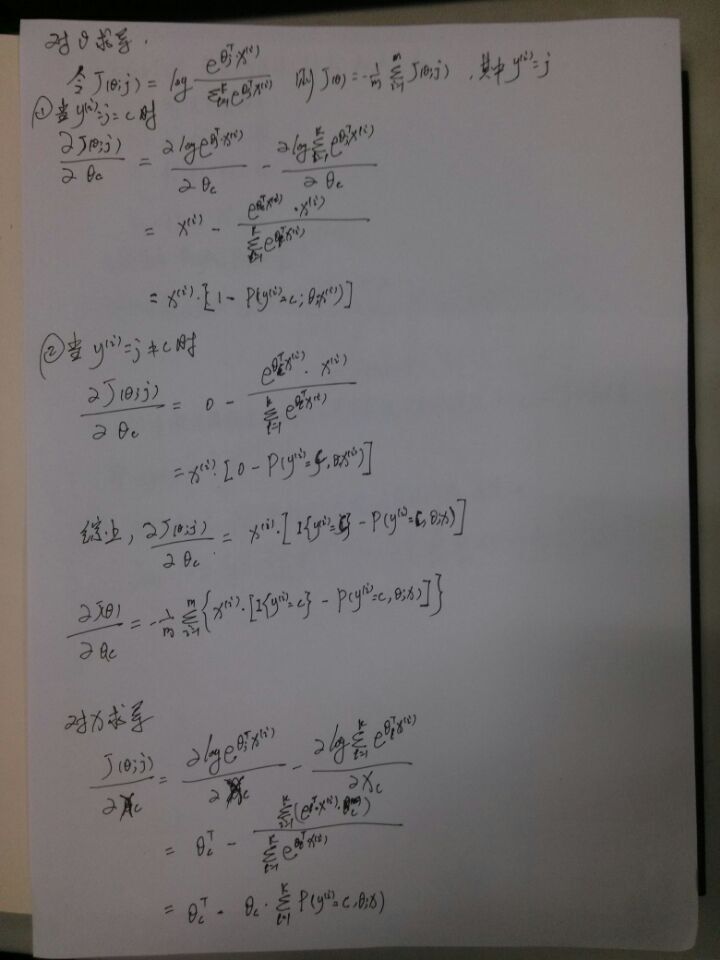 对θ求导.
令 J(θ;j) = log e^{θ_j^T·x^{(i)}} / Σ_{l=1}^k e^{θ_l^T x^{(i)}} 则 J(θ) = -1/m Σ_{i=1}^m J(θ;j), 其中 y^{(i)}=j
① 当 y^{(i)}=j=c 时
∂J(θ;j)/∂θ_c = ∂log e^{θ_j^T·x^{(i)}}/∂θ_c - ∂log Σ_{l=1}^k e^{θ_l^T x^{(i)}}/∂θ_c
= x^{(i)} - e^{θ_c^T x^{(i)}}·x^{(i)} / Σ_{l=1}^k e^{θ_l^T x^{(i)}}
= x^{(i)}·[1 - P(y^{(i)}=c; θ; x^{(i)})]
② 当 y^{(i)}=j≠c 时
∂J(θ;j)/∂θ_c = 0 - e^{θ_c^T x^{(i)}}·x^{(i)} / Σ_{l=1}^k e^{θ_l^T x^{(i)}}
= x^{(i)}·[0 - P(y^{(i)}=c, θ; x^{(i)})]
综上, ∂J(θ;j)/∂θ_c = x^{(i)}·[I{y^{(i)}=c} - P(y^{(i)}=c, θ; x)]
∂J(θ)/∂θ_c = -1/m Σ_{i=1}^m {x^{(i)}·[I{y^{(i)}=c} - P(y^{(i)}=c, θ; x)]}
对x求导
J(θ;j)/∂x_c = ∂log e^{θ_j^T x^{(i)}}/∂x_c - ∂log Σ_{l=1}^k e^{θ_l^T x^{(i)}}/∂x_c
= θ_c^T - Σ^k / Σ_{l=1}^k e^{θ_l^T x^{(i)}}
= θ_c^T - θ_c·Σ_{l=1}^k P(y^{(i)}=c, θ; x)